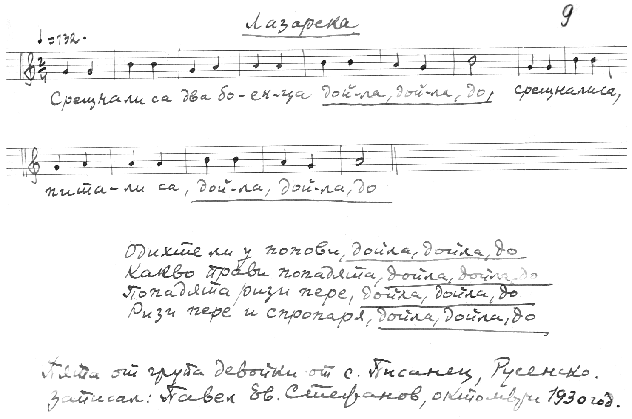 Лазарска
9
♩=132.
Срещнали са два бо-ен-ца дой-ла, дой-ла, до, срещналиса,
пита-ли са, дой-ла, дой-ла, до
Одихте ли у попови, дойла, дойла, до
Какво прави попадята, дойла, дойла, до
Попадята ризи пере, дойла, дойла, до
Ризи пере и спропаря, дойла, дойла, до
Пята от група девойки от с. Писанец, Русенско.
Записал: Павел Ев. Стефанов, октомври 1930 год.